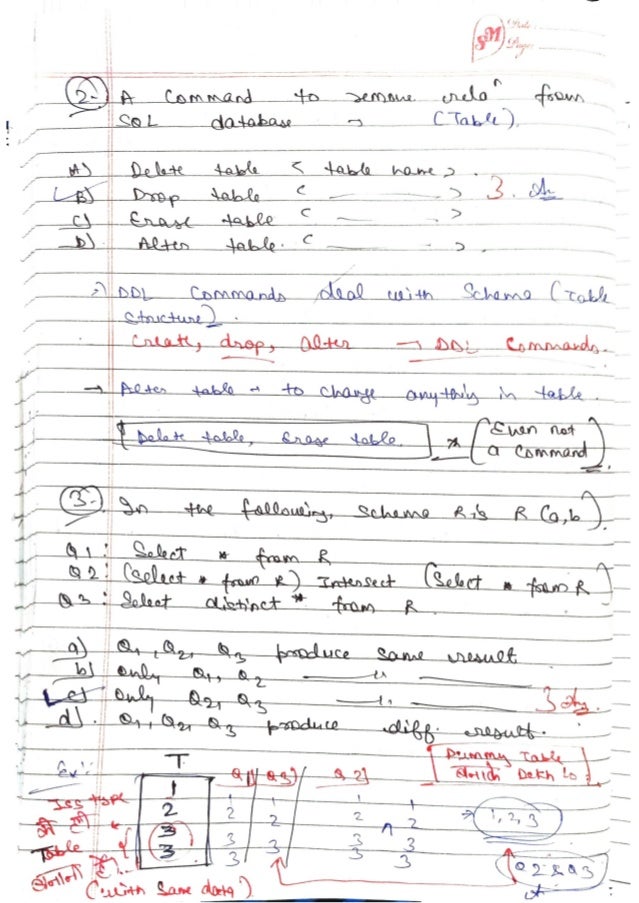 SM Date:
Page:
2. A Command to remove relaⁿ from
SQL database → (Table).
A) Delete table < table name > .
B) Drop table < ——— > 3. Ans
C) Erase table < ——— >
D) Alter table. < ——— > .
⇒ DDL Commands deal with Schema (Table
Structure).
Create, drop, alter → DDL Commands.
→ Alter table → to change anything in table.
[Delete table, Erase table.] * (Even not
a Command)
3. In the following, Schema R is R (a,b).
Q1: Select * from R
Q2: (Select * from R) Intersect (Select * from R)
Q3: Select distinct * from R.
a) Q1, Q2, Q3 produce same result
b) only Q1, Q2 ——— " ———
c) only Q2, Q3 ——— " ——— 3 Ans.
d). Q1, Q2, Q3 produce diff. result.
Ex:- T Q1) Q3) Q2) [Dummy Table
बनाके Dekh lo]
1 1 1 1 1
2 2 2 2 ∩ 2 ⇒ 1, 2, 3
3 3 3 3 3
3 3 3 3
Iss type
Table
("with same data")
Q2 & Q3